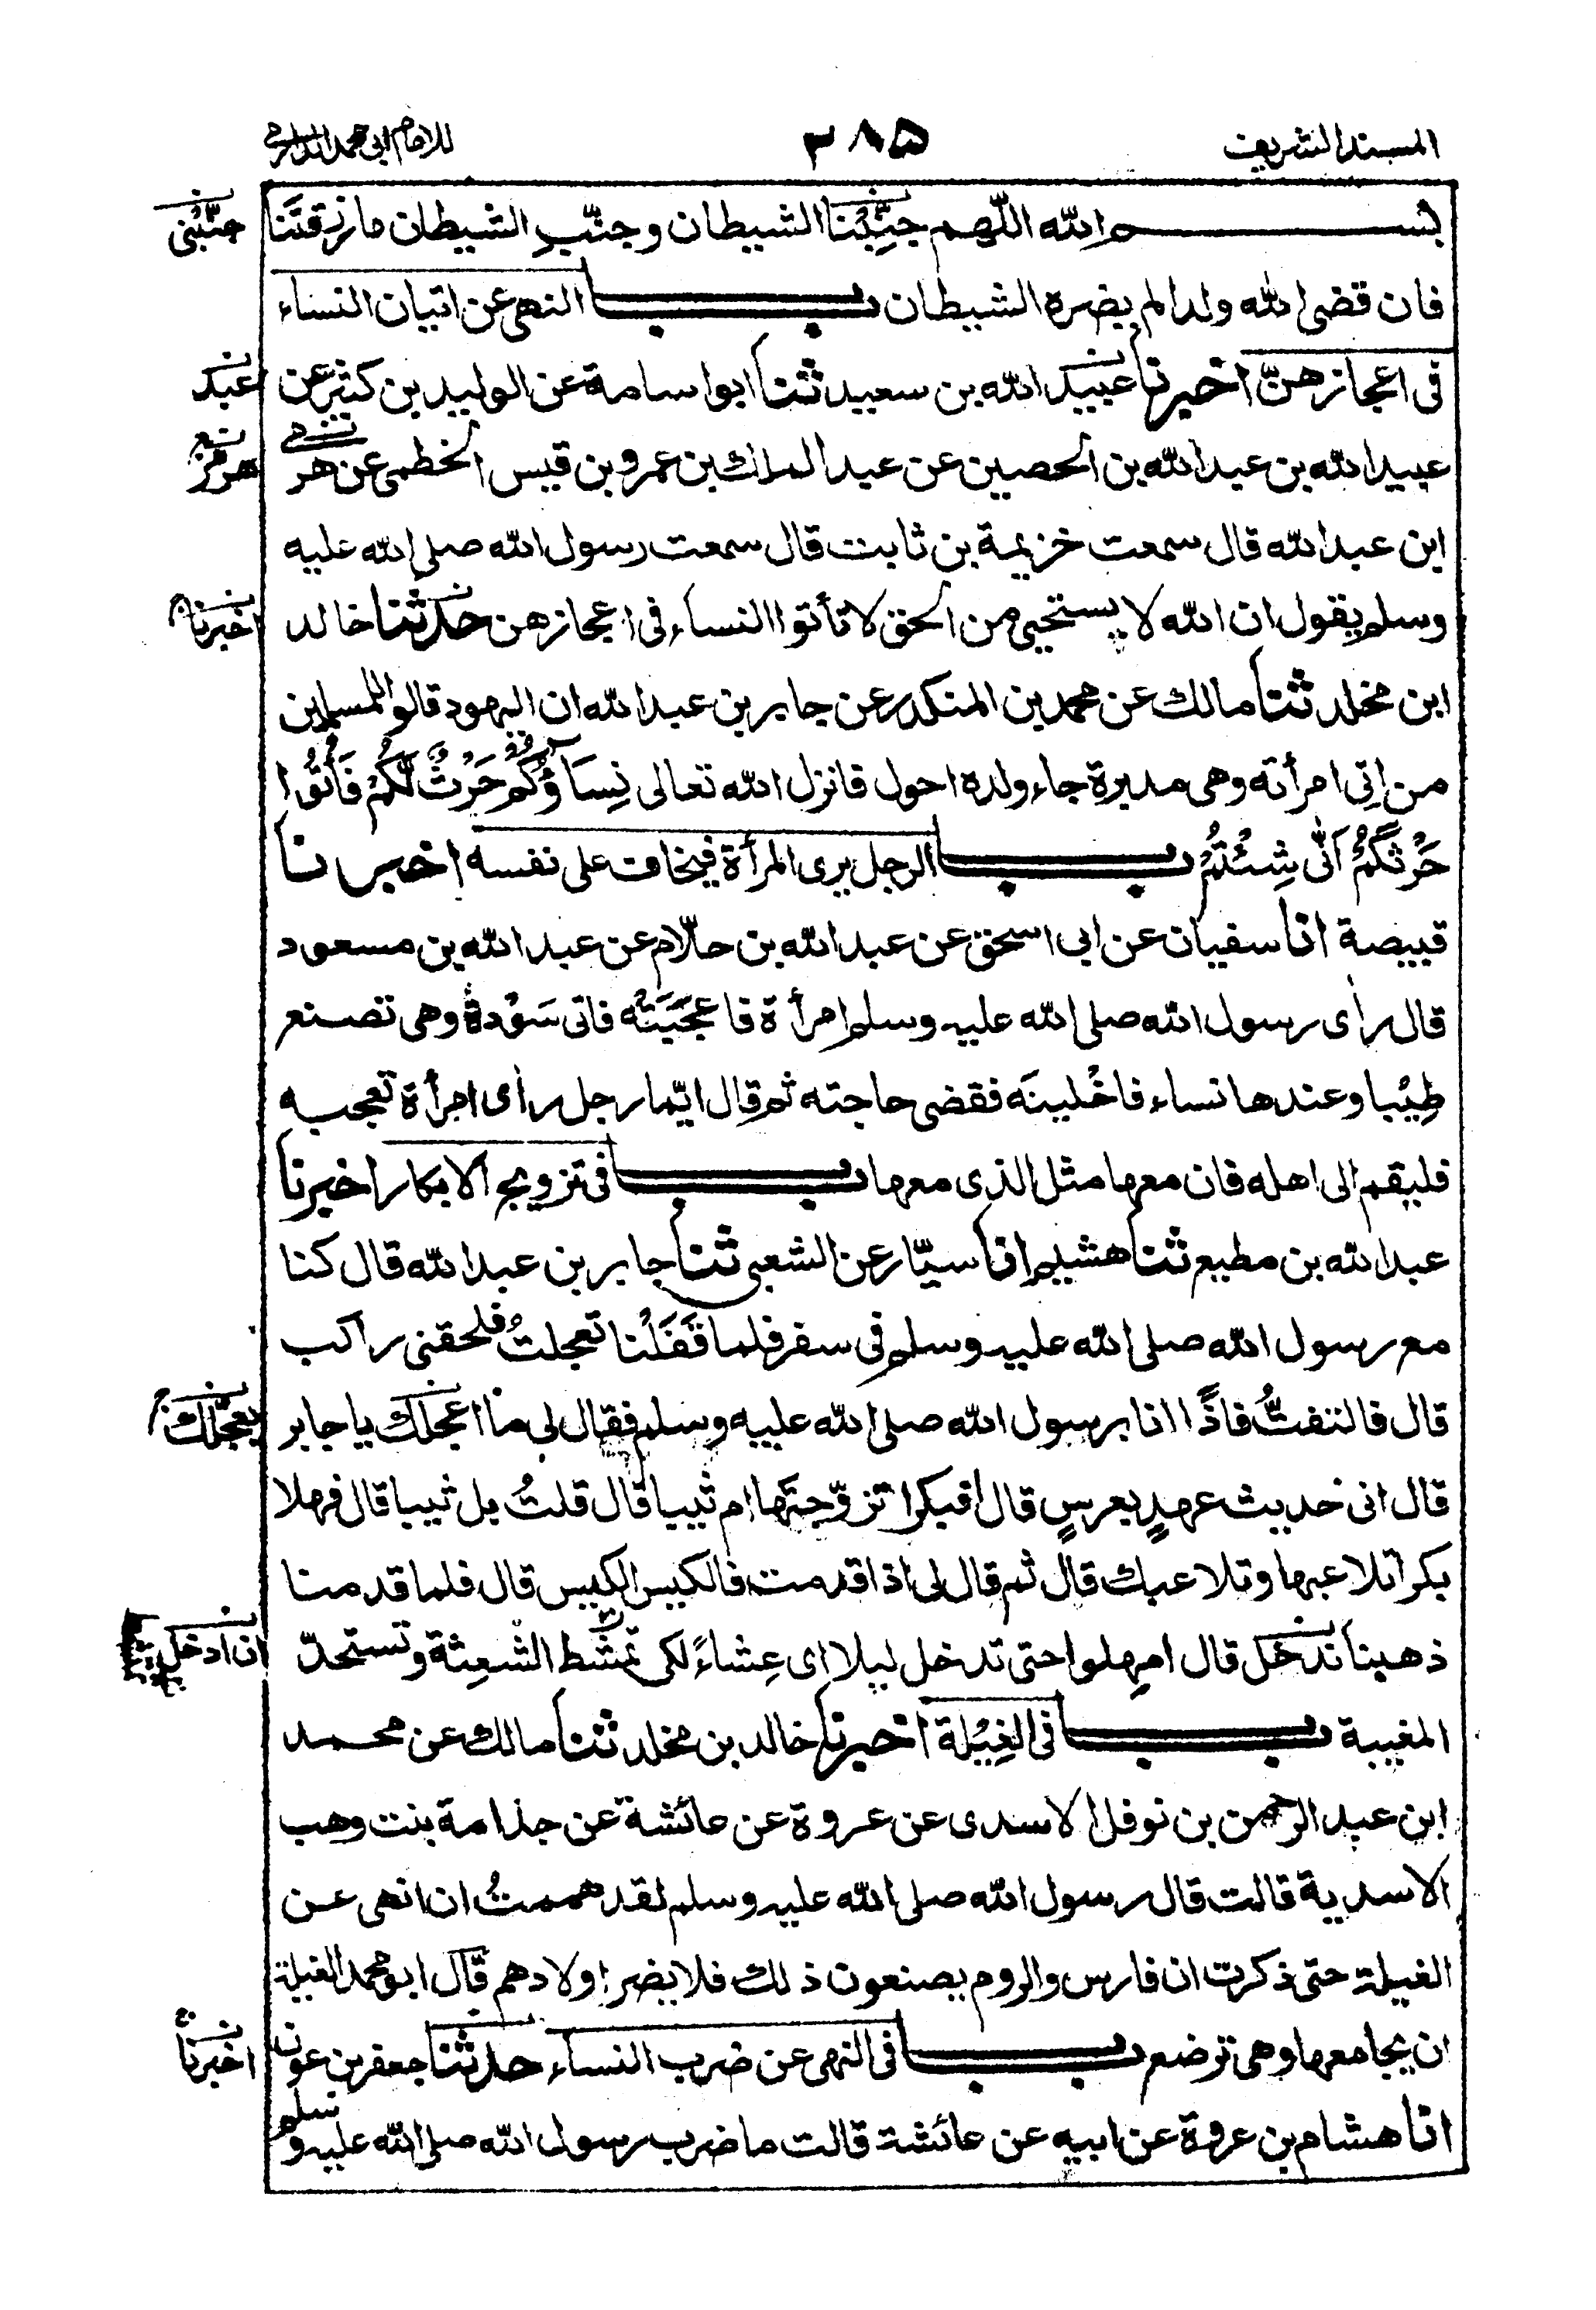 المسند الشريف
٢٨٥
للامام ابى محمد الدارمى
بسم الله اللّٰهم جنِّبْنا الشيطان وجنّبِ الشيطان ما رزقتَنا
جنّبْنى
فان قضى الله ولدا لم يضره الشيطان باب النهى عن اتيان النساء
فى اعجازهنّ اخبرنا عبيد الله بن سعيد ثنا ابو اسامة عن الوليد بن كثير عن
عبد
عبيد الله بن عبد الله بن الحصين عن عبد الملك بن عمرو بن قيس الخطمى عن هرمى
هرمز
ابن عبد الله قال سمعت خزيمة بن ثابت قال سمعت رسول الله صلى الله عليه
وسلم يقول ان الله لا يستحيى من الحق لا تأتوا النساء فى اعجازهن حدثنا خالد
اخبرنا
ابن مخلد ثنا مالك عن محمد بن المنكدر عن جابر بن عبد الله ان اليهود قالوا للمسلمين
من اتى امرأته وهى مدبرة جاء ولده احول فانزل الله تعالى نِسَاؤُكُمْ حَرْثٌ لَّكُمْ فَأْتُوا
حَرْثَكُمْ اَنّٰى شِئْتُمْ باب الرجل يرى المرأة فيخاف على نفسه اخبرنا
قبيصة انا سفيان عن ابى اسحق عن عبد الله بن حلّام عن عبد الله بن مسعود
قال رأى رسول الله صلى الله عليه وسلم امرأة فاعجَبَتْه فاتى سَوْدة وهى تصنع
طِيْبا وعندها نساء فاخْلينَه فقضى حاجته ثم قال ايّما رجل رأى امرأة تعجبه
فليقم الى اهله فان معها مثل الذى معها باب فى تزويج الابكار اخبرنا
عبد الله بن مطيع ثنا هشيم انا سيّار عن الشعبى ثنا جابر بن عبد الله قال كنا
مع رسول الله صلى الله عليه وسلم فى سفر فلما قَفَلْنا تعجلتُ فلحقنى راكب
قال فالتفتُّ فاذًا انا برسول الله صلى الله عليه وسلم فقال لى ما اعجلك يا جابر
يعجّلك
قال انى حديث عهدٍ بعرسٍ قال افبكرا تزوّجتَها ام ثيبا قال قلتُ بل ثيبا قال فهلا
بكرا تلاعبها وتلاعبك قال ثم قال لى اذا قدمت فالكيس الكيس قال فلما قدمنا
ذهبنا ندخل قال امهِلوا حتى تدخل ليلا اى عِشاءً لكى تمشّط الشعِثة وتستحدّ
ان ادخل
المغيبة باب فى الغِيْلة اخبرنا خالد بن مخلد ثنا مالك عن محمد
ابن عبد الرحمن بن نوفل الاسدى عن عروة عن عائشة عن جذامة بنت وهب
الاسدية قالت قال رسول الله صلى الله عليه وسلم لقد هممتُ ان انهى عن
الغيلة حتى ذكرت ان فارس والروم يصنعون ذلك فلا يضر اولادهم قال ابو محمد الغيلة
ان يجامعها وهى ترضع باب فى النهى عن ضرب النساء حدثنا جعفر بن عون
اخبرنا
انا هشام بن عروة عن ابيه عن عائشة قالت ما ضرب رسول الله صلى الله عليه وسلم